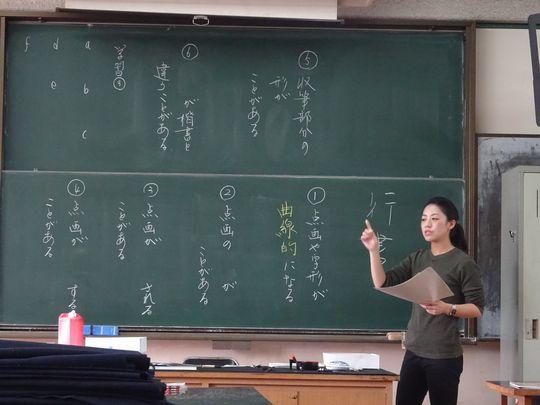 行
① 点画や字形が
曲線的になる
② 点画の
が
ことがある
③ 点画が
される
ことがある
④ 点画が
する
ことがある
⑤ 収筆部分の
形が
ことがある
⑥
が楷書と
違うことがある
学習
a
b
c
d
e
f